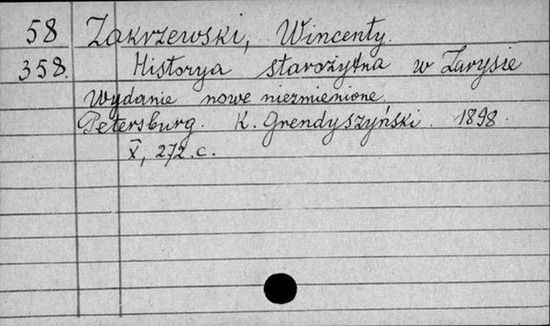 58 Zakrzewski, Wincenty.
358. Historya starożytna w Zarysie
Wydanie nowe niezmienione.
Petersburg. K. Grendyszyński. 1898.
X, 272.c.